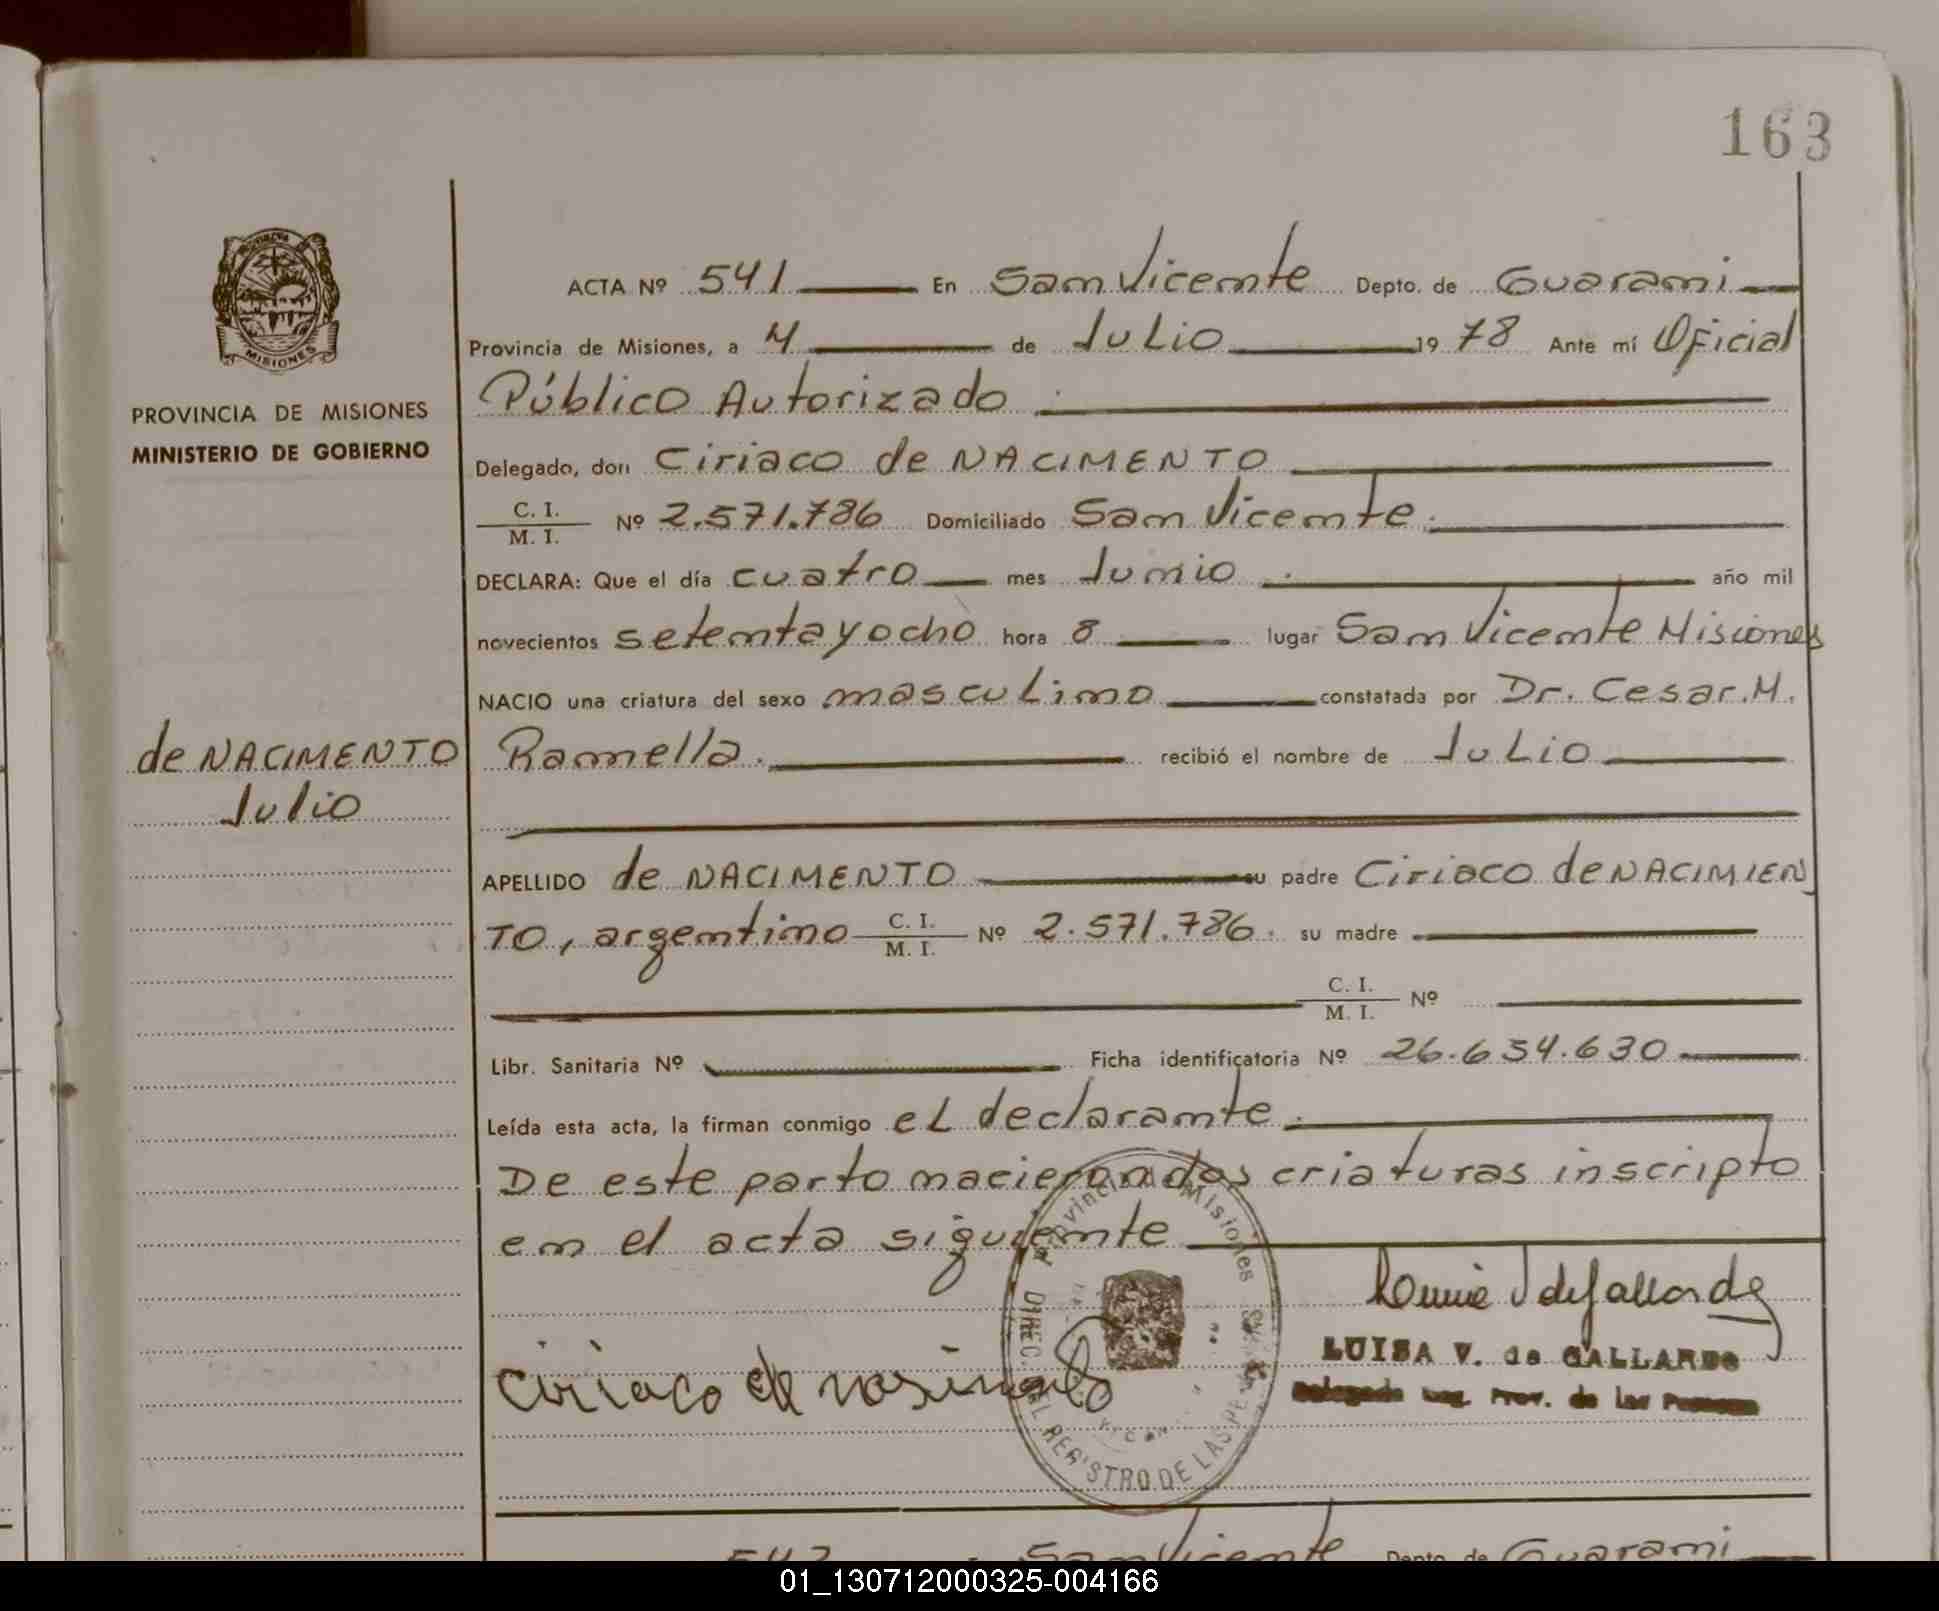 163
ACTA Nº 541 En San Vicente Depto. de Guarani
Provincia de Misiones, a 4 de Julio 1978 Ante mí Oficial
Público Autorizado
PROVINCIA DE MISIONES
MINISTERIO DE GOBIERNO
Delegado, don Ciriaco de NACIMENTO
C. I. / M. I. Nº 2.571.786 Domiciliado San Vicente.
DECLARA: Que el día cuatro mes Junio año mil
novecientos setenta y ocho hora 8 lugar San Vicente Misiones
NACIO una criatura del sexo masculino constatada por Dr. Cesar.M.
de NACIMENTO
Julio
Ramella. recibió el nombre de Julio
APELLIDO de NACIMENTO su padre Ciriaco de NACIMIEN
TO, argentino C. I. / M. I. Nº 2.571.786. su madre
C. I. / M. I. Nº
Libr. Sanitaria Nº Ficha identificatoria Nº 26.654.630
Leída esta acta, la firman conmigo el declarante.
De este parto nacieron dos criaturas inscripto
en el acta siguiente
LUISA V. de GALLARDO
Delegada Reg. Prov. de las Personas
Ciriaco de
Provincia de Misiones
DIREC. DEL REGISTRO DE LAS PE
MISIONES
542 San Vicente Depto. de Guarani
01_130712000325-004166